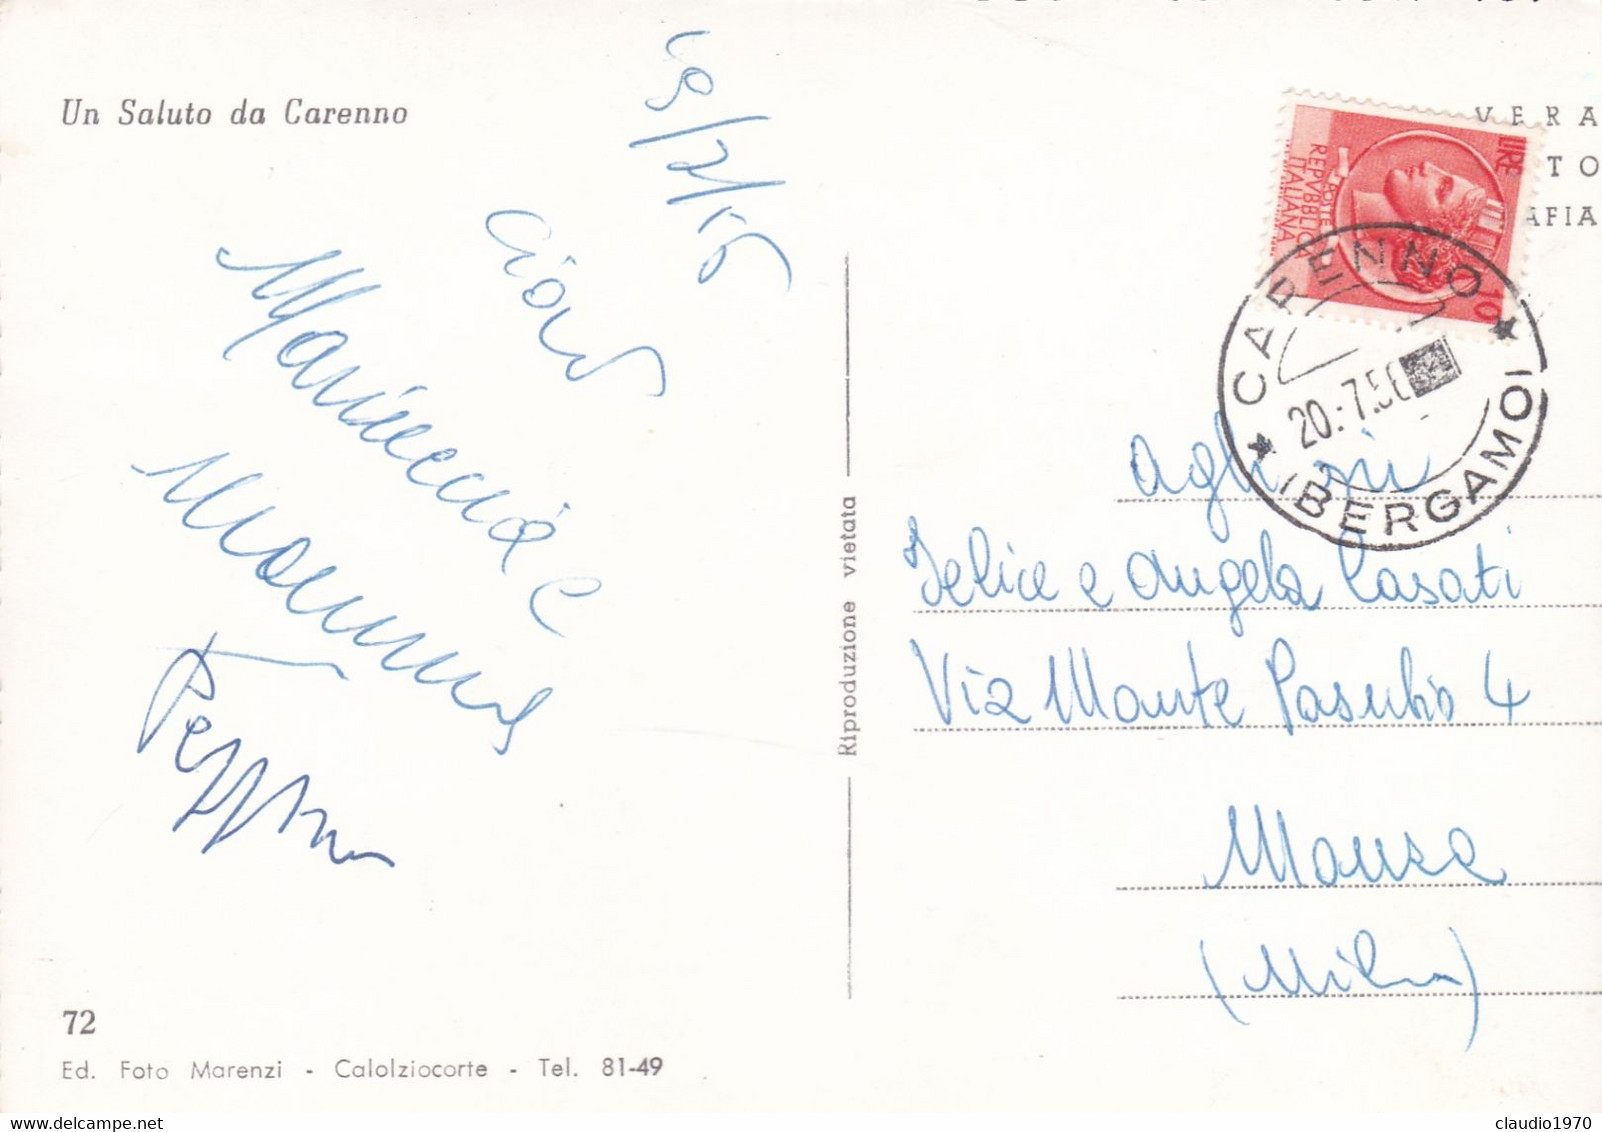 Un Saluto da Carenno
19/7/56
ciao
Mariuccia e
Mamma
Peppino
72
Ed. Foto Marenzi - Calolziocorte - Tel. 81-49
Riproduzione vietata
VERA
TO
AFIA
LIRE
10
POSTE
REPVBBLICA
ITALIANA
CARENNO
20.-7.56
(BERGAMO)
agli zii
Felice e Angela Casati
Via Monte Pasubio 4
Monza
(Milano)
claudio1970